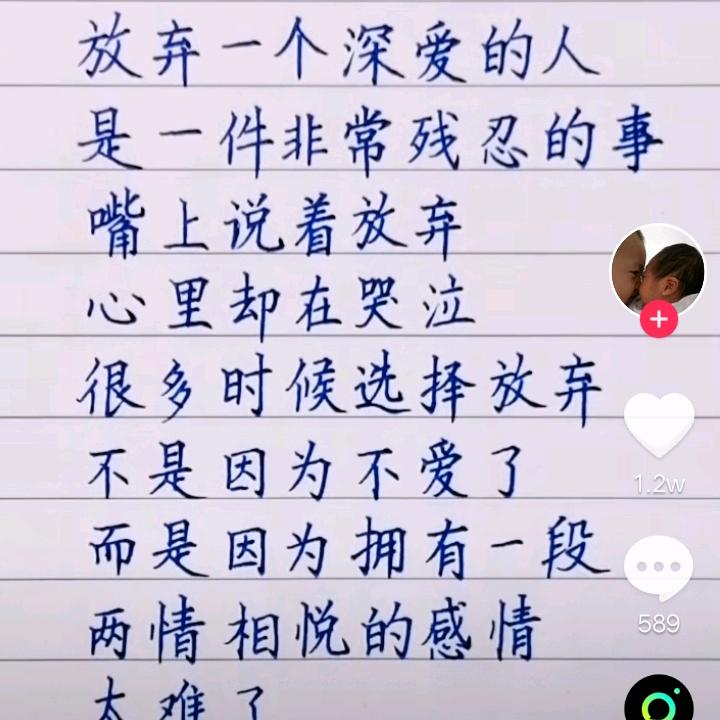 放弃一个深爱的人
是一件非常残忍的事
嘴上说着放弃
心里却在哭泣
很多时候选择放弃
不是因为不爱了
而是因为拥有一段
两情相悦的感情
太难了
1.2w
589